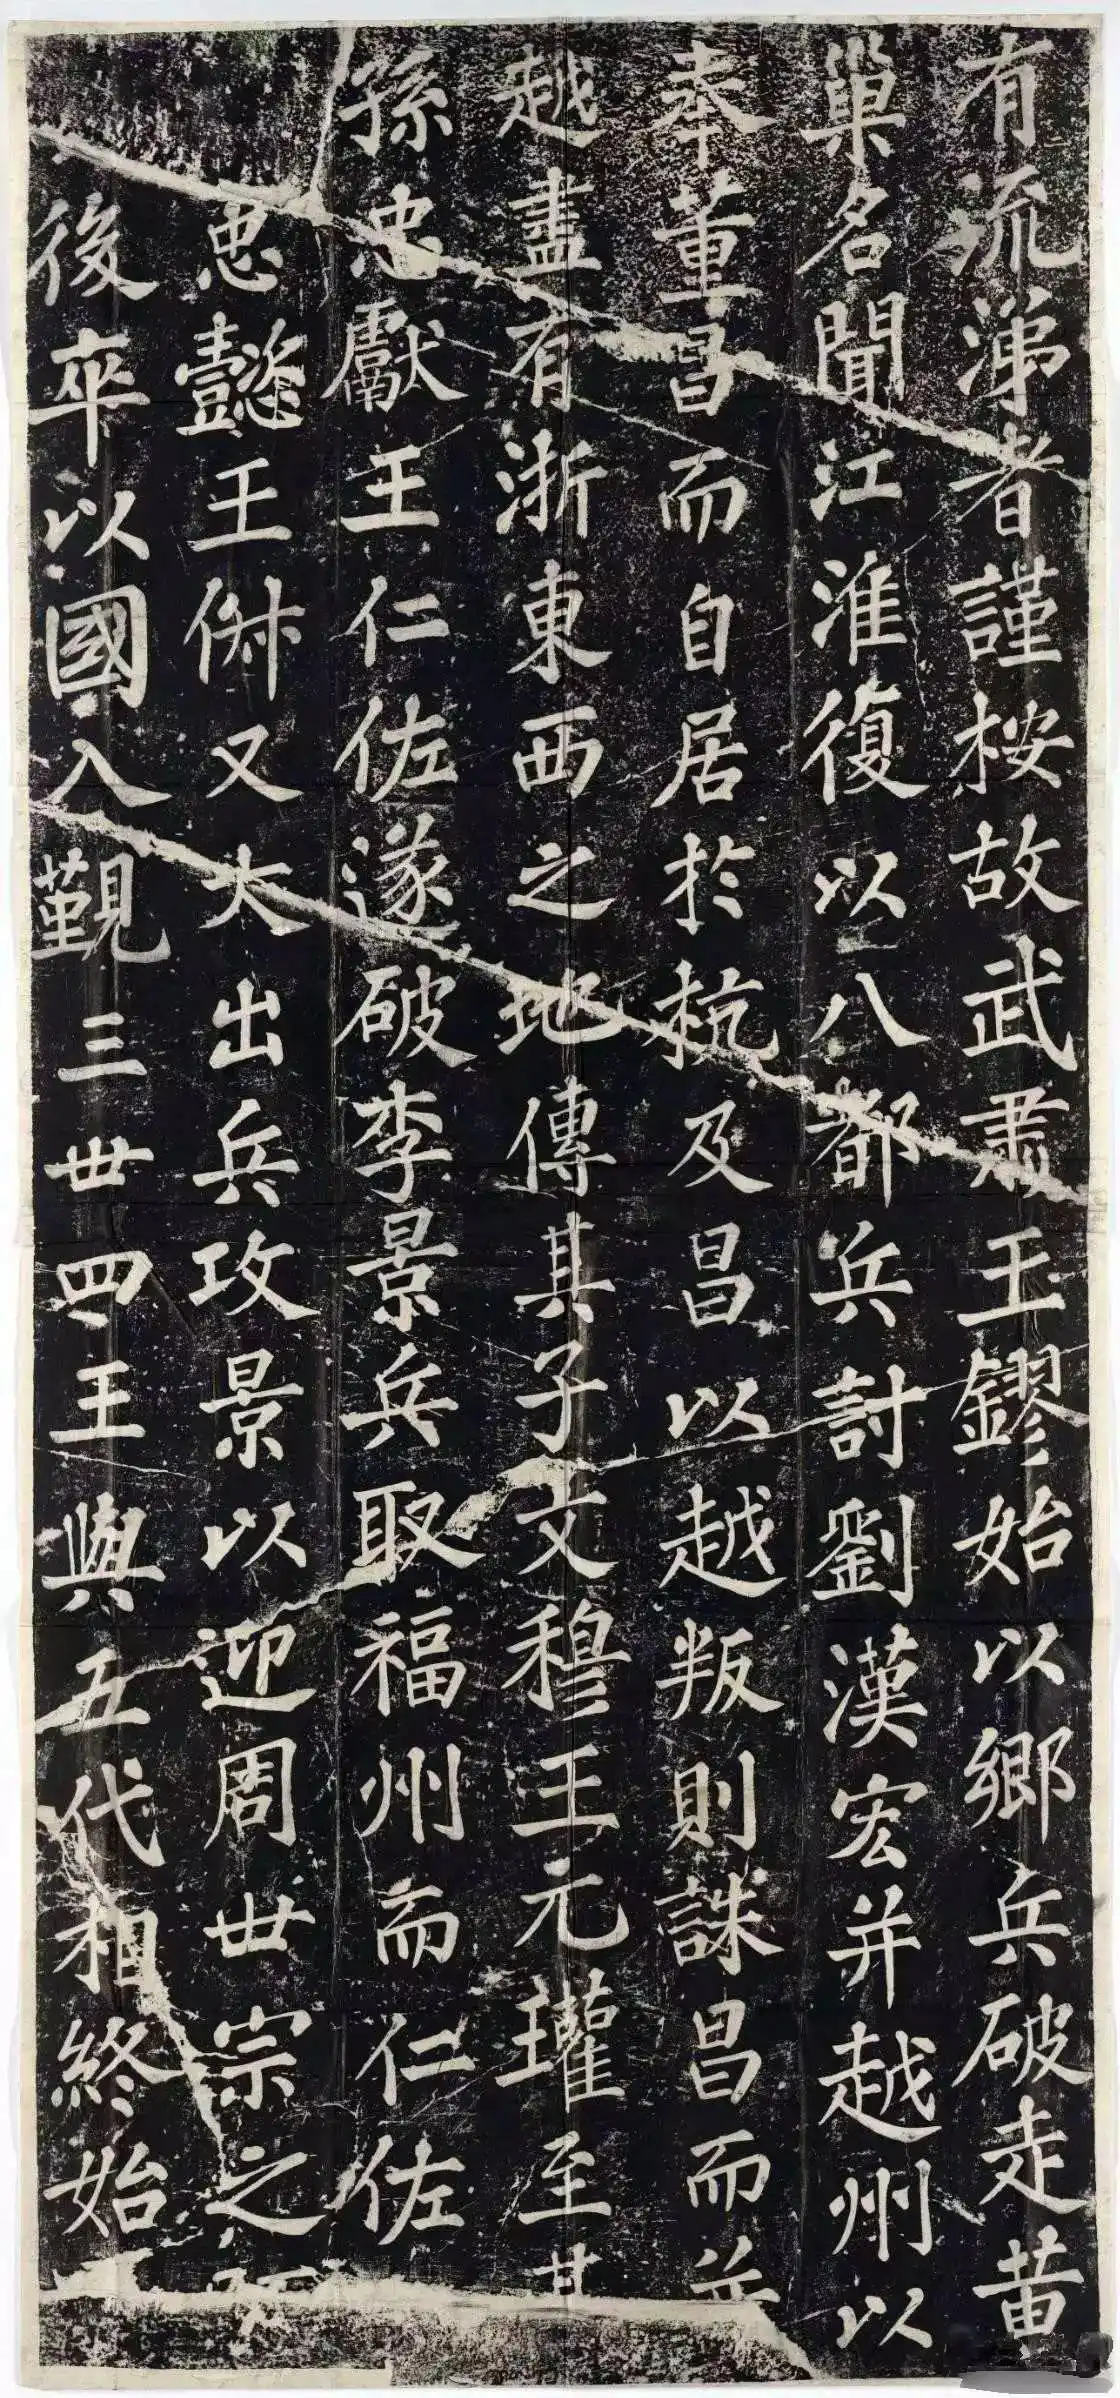 有流涕者謹按故武肅王鏐始以鄉兵破走黄
巢名聞江淮復以八都兵討劉漢宏并越州以
奉董昌而自居於杭及昌以越叛則誅昌而并
越盡有浙東西之地傳其子文穆王元瓘至其
孫忠獻王仁佐遂破李景兵取福州而仁佐
忠懿王俶又大出兵攻景以迎周世宗之
後卒以國入覲三世四王與五代相終始